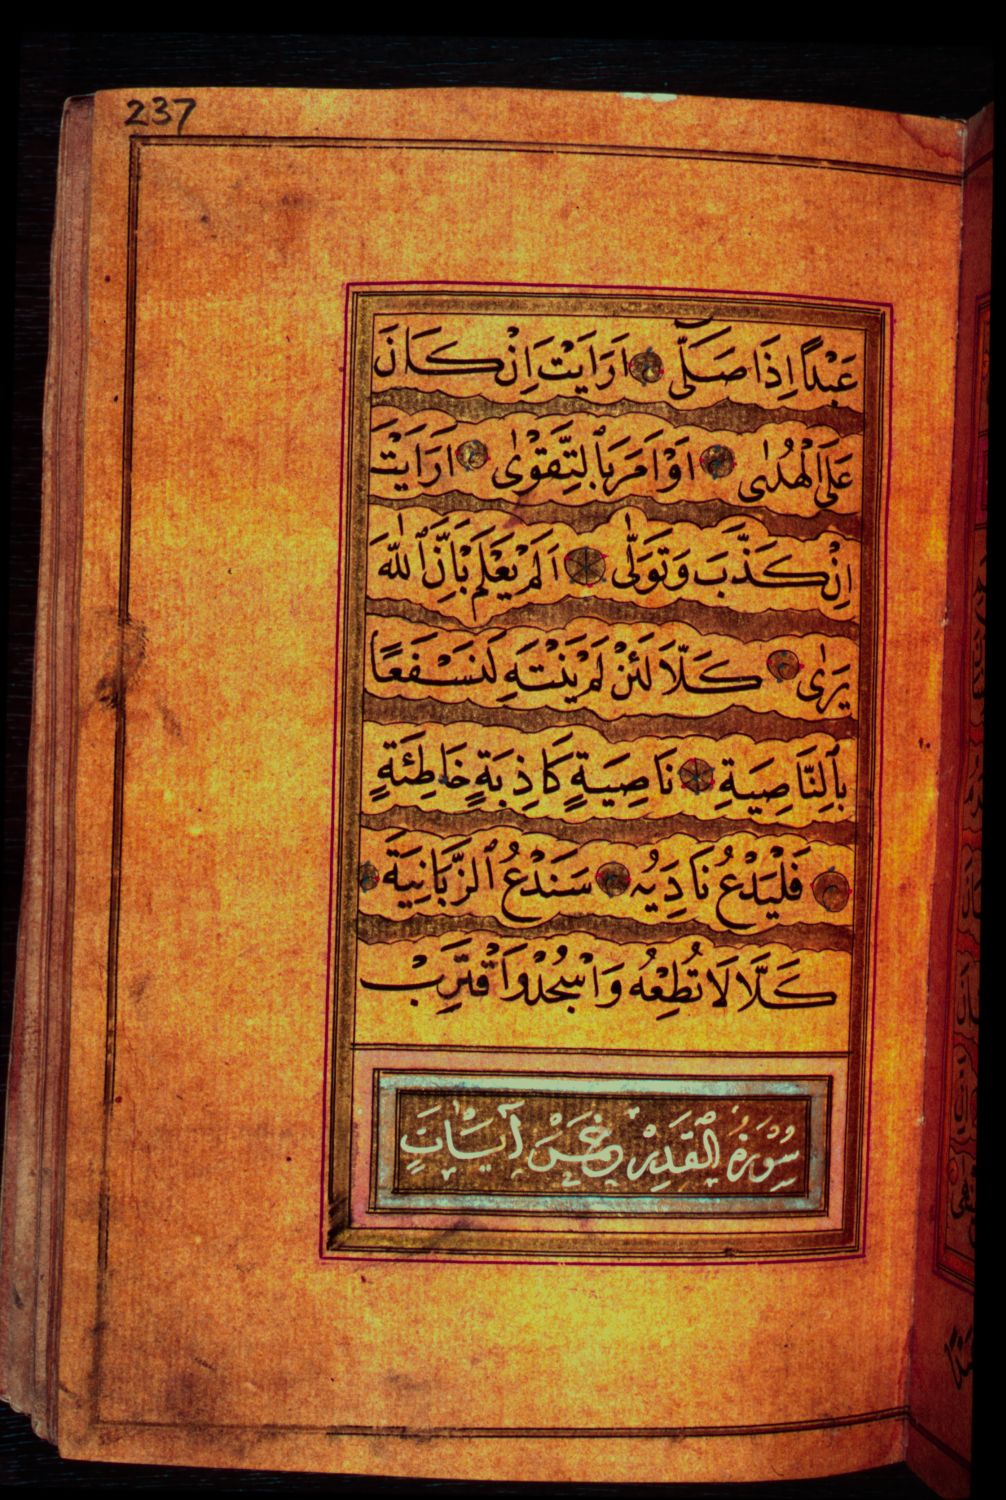 237
عَبْدًا اِذَا صَلّٰى اَرَاَيْتَ اِنْ كَانَ
عَلَى الْهُدٰى اَوْ اَمَرَ بِالتَّقْوٰى اَرَاَيْتَ
اِنْ كَذَّبَ وَتَوَلّٰى اَلَمْ يَعْلَمْ بِاَنَّ اللّٰهَ
يَرٰى كَلَّا لَئِنْ لَمْ يَنْتَهِ لَنَسْفَعًا
بِالنَّاصِيَةِ نَاصِيَةٍ كَاذِبَةٍ خَاطِئَةٍ
فَلْيَدْعُ نَادِيَهُ سَنَدْعُ الزَّبَانِيَةَ
كَلَّا لَا تُطِعْهُ وَاسْجُدْ وَاقْتَرِبْ
سُوْرَةُ الْقَدْرِ خَمْسُ آيَاتٍ